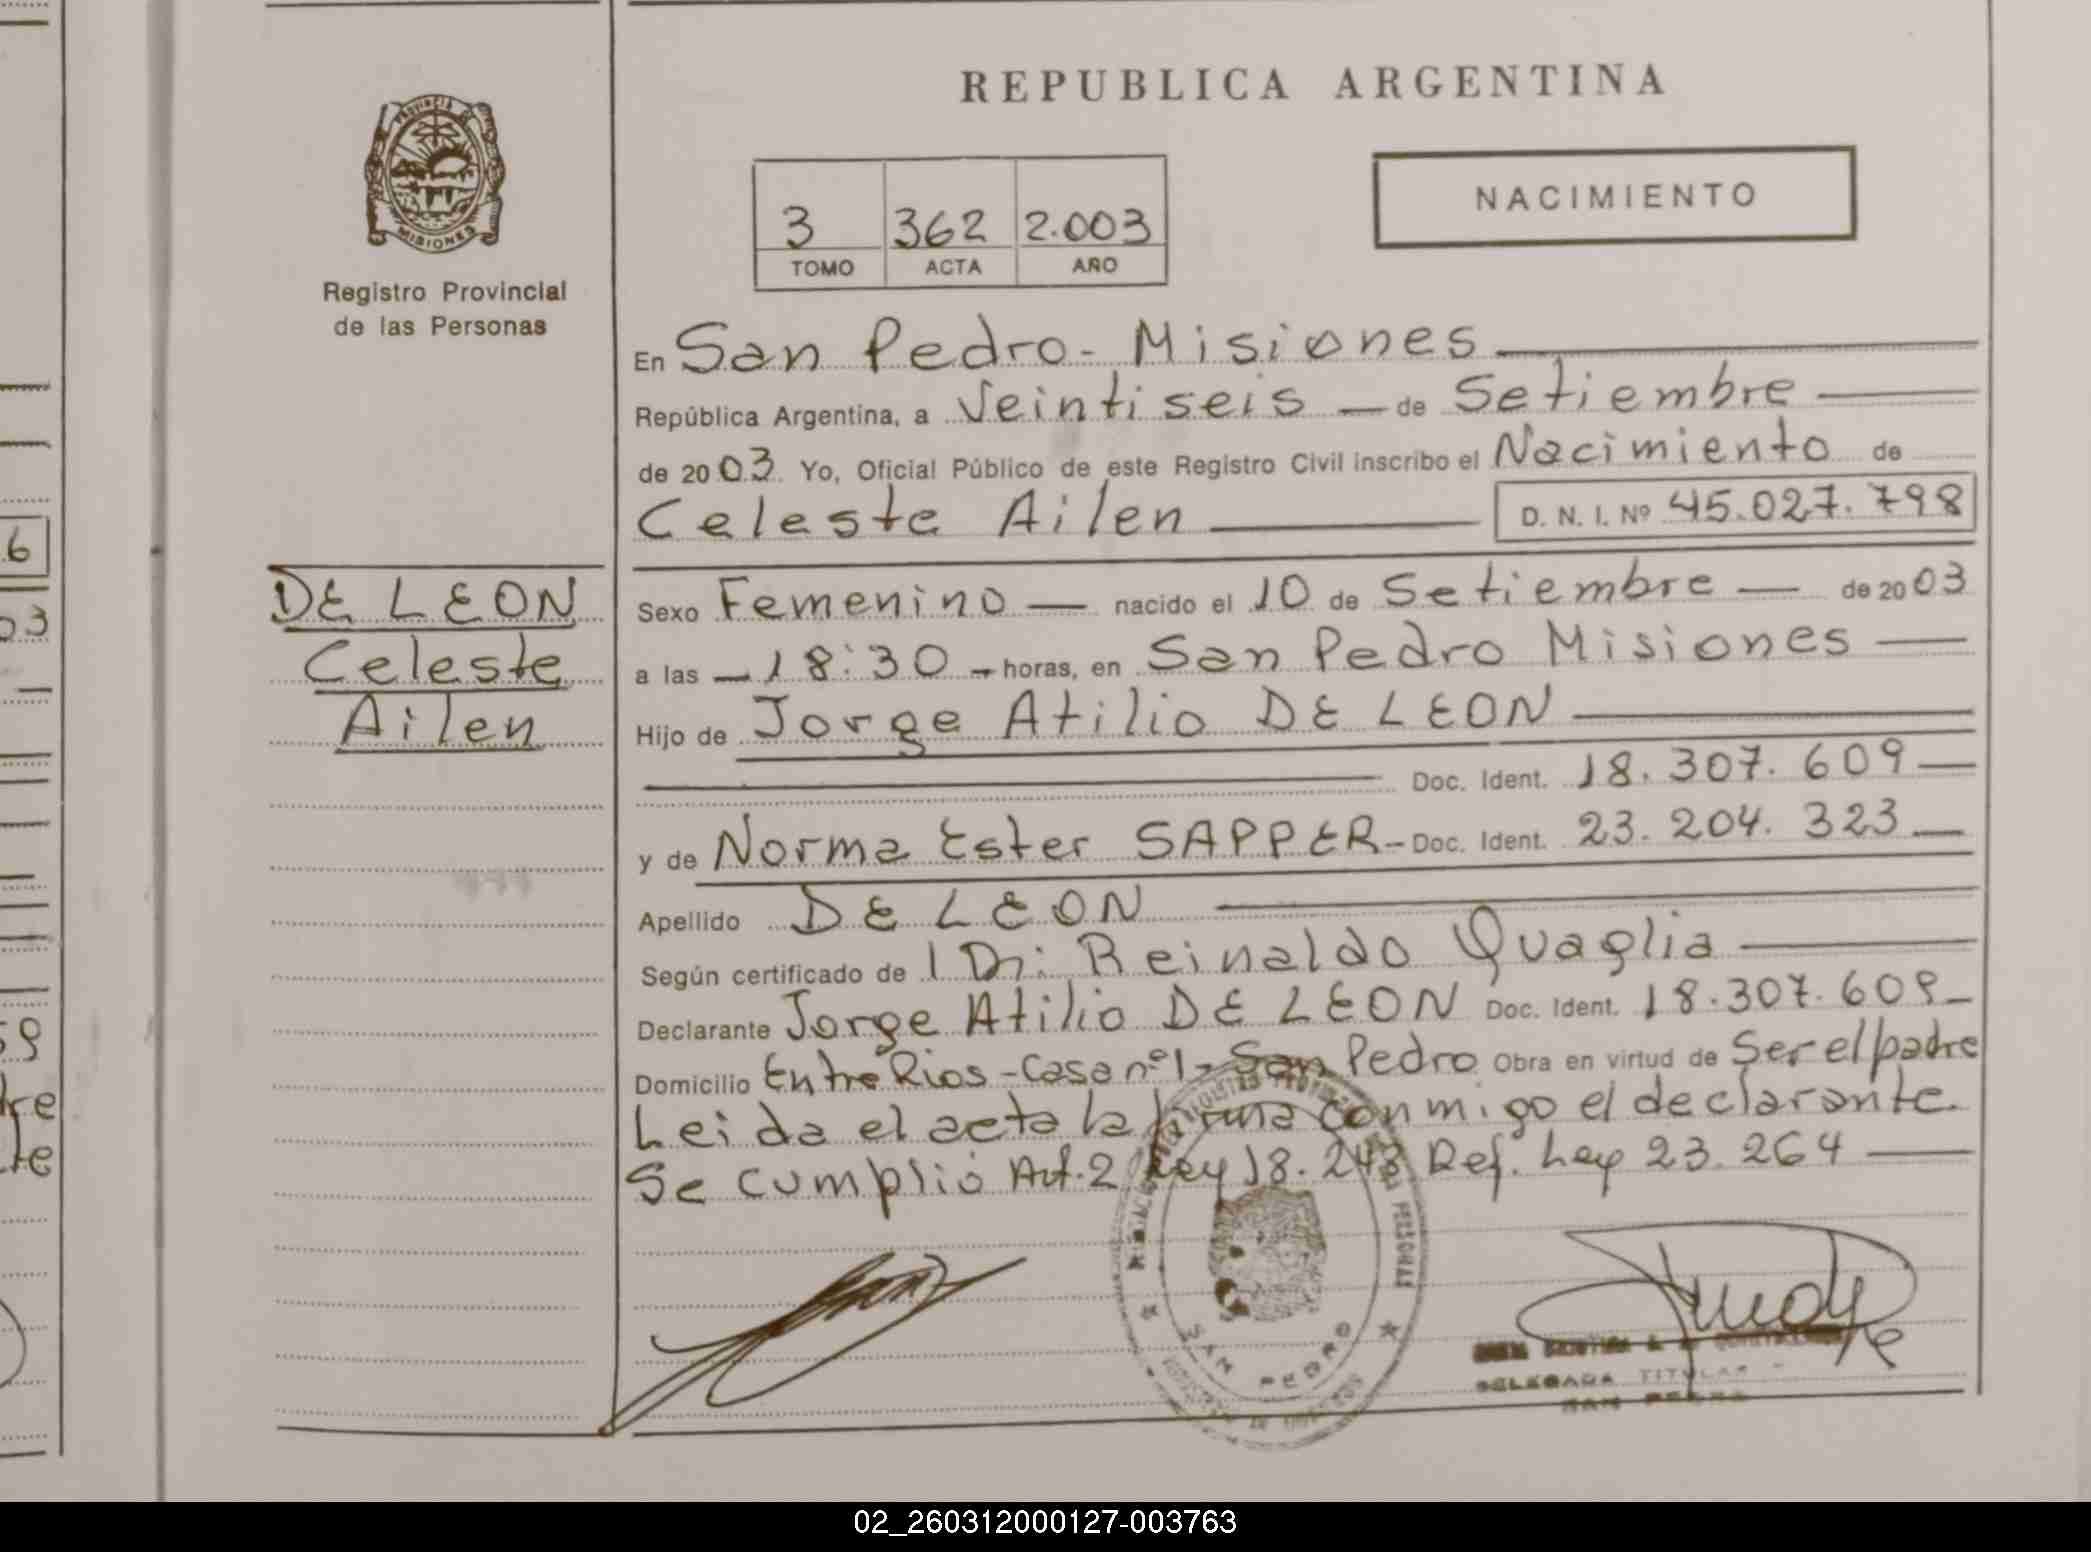 REPUBLICA ARGENTINA
PROVINCIA DE
MISIONES
Registro Provincial
de las Personas
3 362 2.003
TOMO ACTA AÑO
NACIMIENTO
En San Pedro - Misiones
República Argentina, a Veintiseis — de Setiembre
de 2003 Yo, Oficial Público de este Registro Civil inscribo el Nacimiento de
Celeste Ailen D. N. I. Nº 45.027.798
DE LEON
Celeste
Ailen
Sexo Femenino — nacido el 10 de Setiembre — de 2003
a las — 18:30 — horas, en San Pedro Misiones —
Hijo de Jorge Atilio DE LEON
Doc. Ident. 18.307.609 —
y de Norma Ester SAPPER - Doc. Ident. 23.204.323 —
Apellido DE LEON
Según certificado de Reinaldo Quaglia
Declarante Jorge Atilio DE LEON Doc. Ident. 18.307.609 —
Domicilio Entre Rios - Casa nº 1 - San Pedro Obra en virtud de Ser el padre
Leida el acta la firma conmigo el declarante.
Se cumplió Art. 2 Ley 18.248 Ref. Ley 23.264 —
PERSONAS
SAN PEDRO
DELEGADA TITULAR
SAN PEDRO
6
03
59
dre
te
02_260312000127-003763